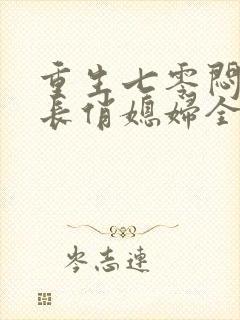 重生七零闷
长俏媳妇全
岑志连